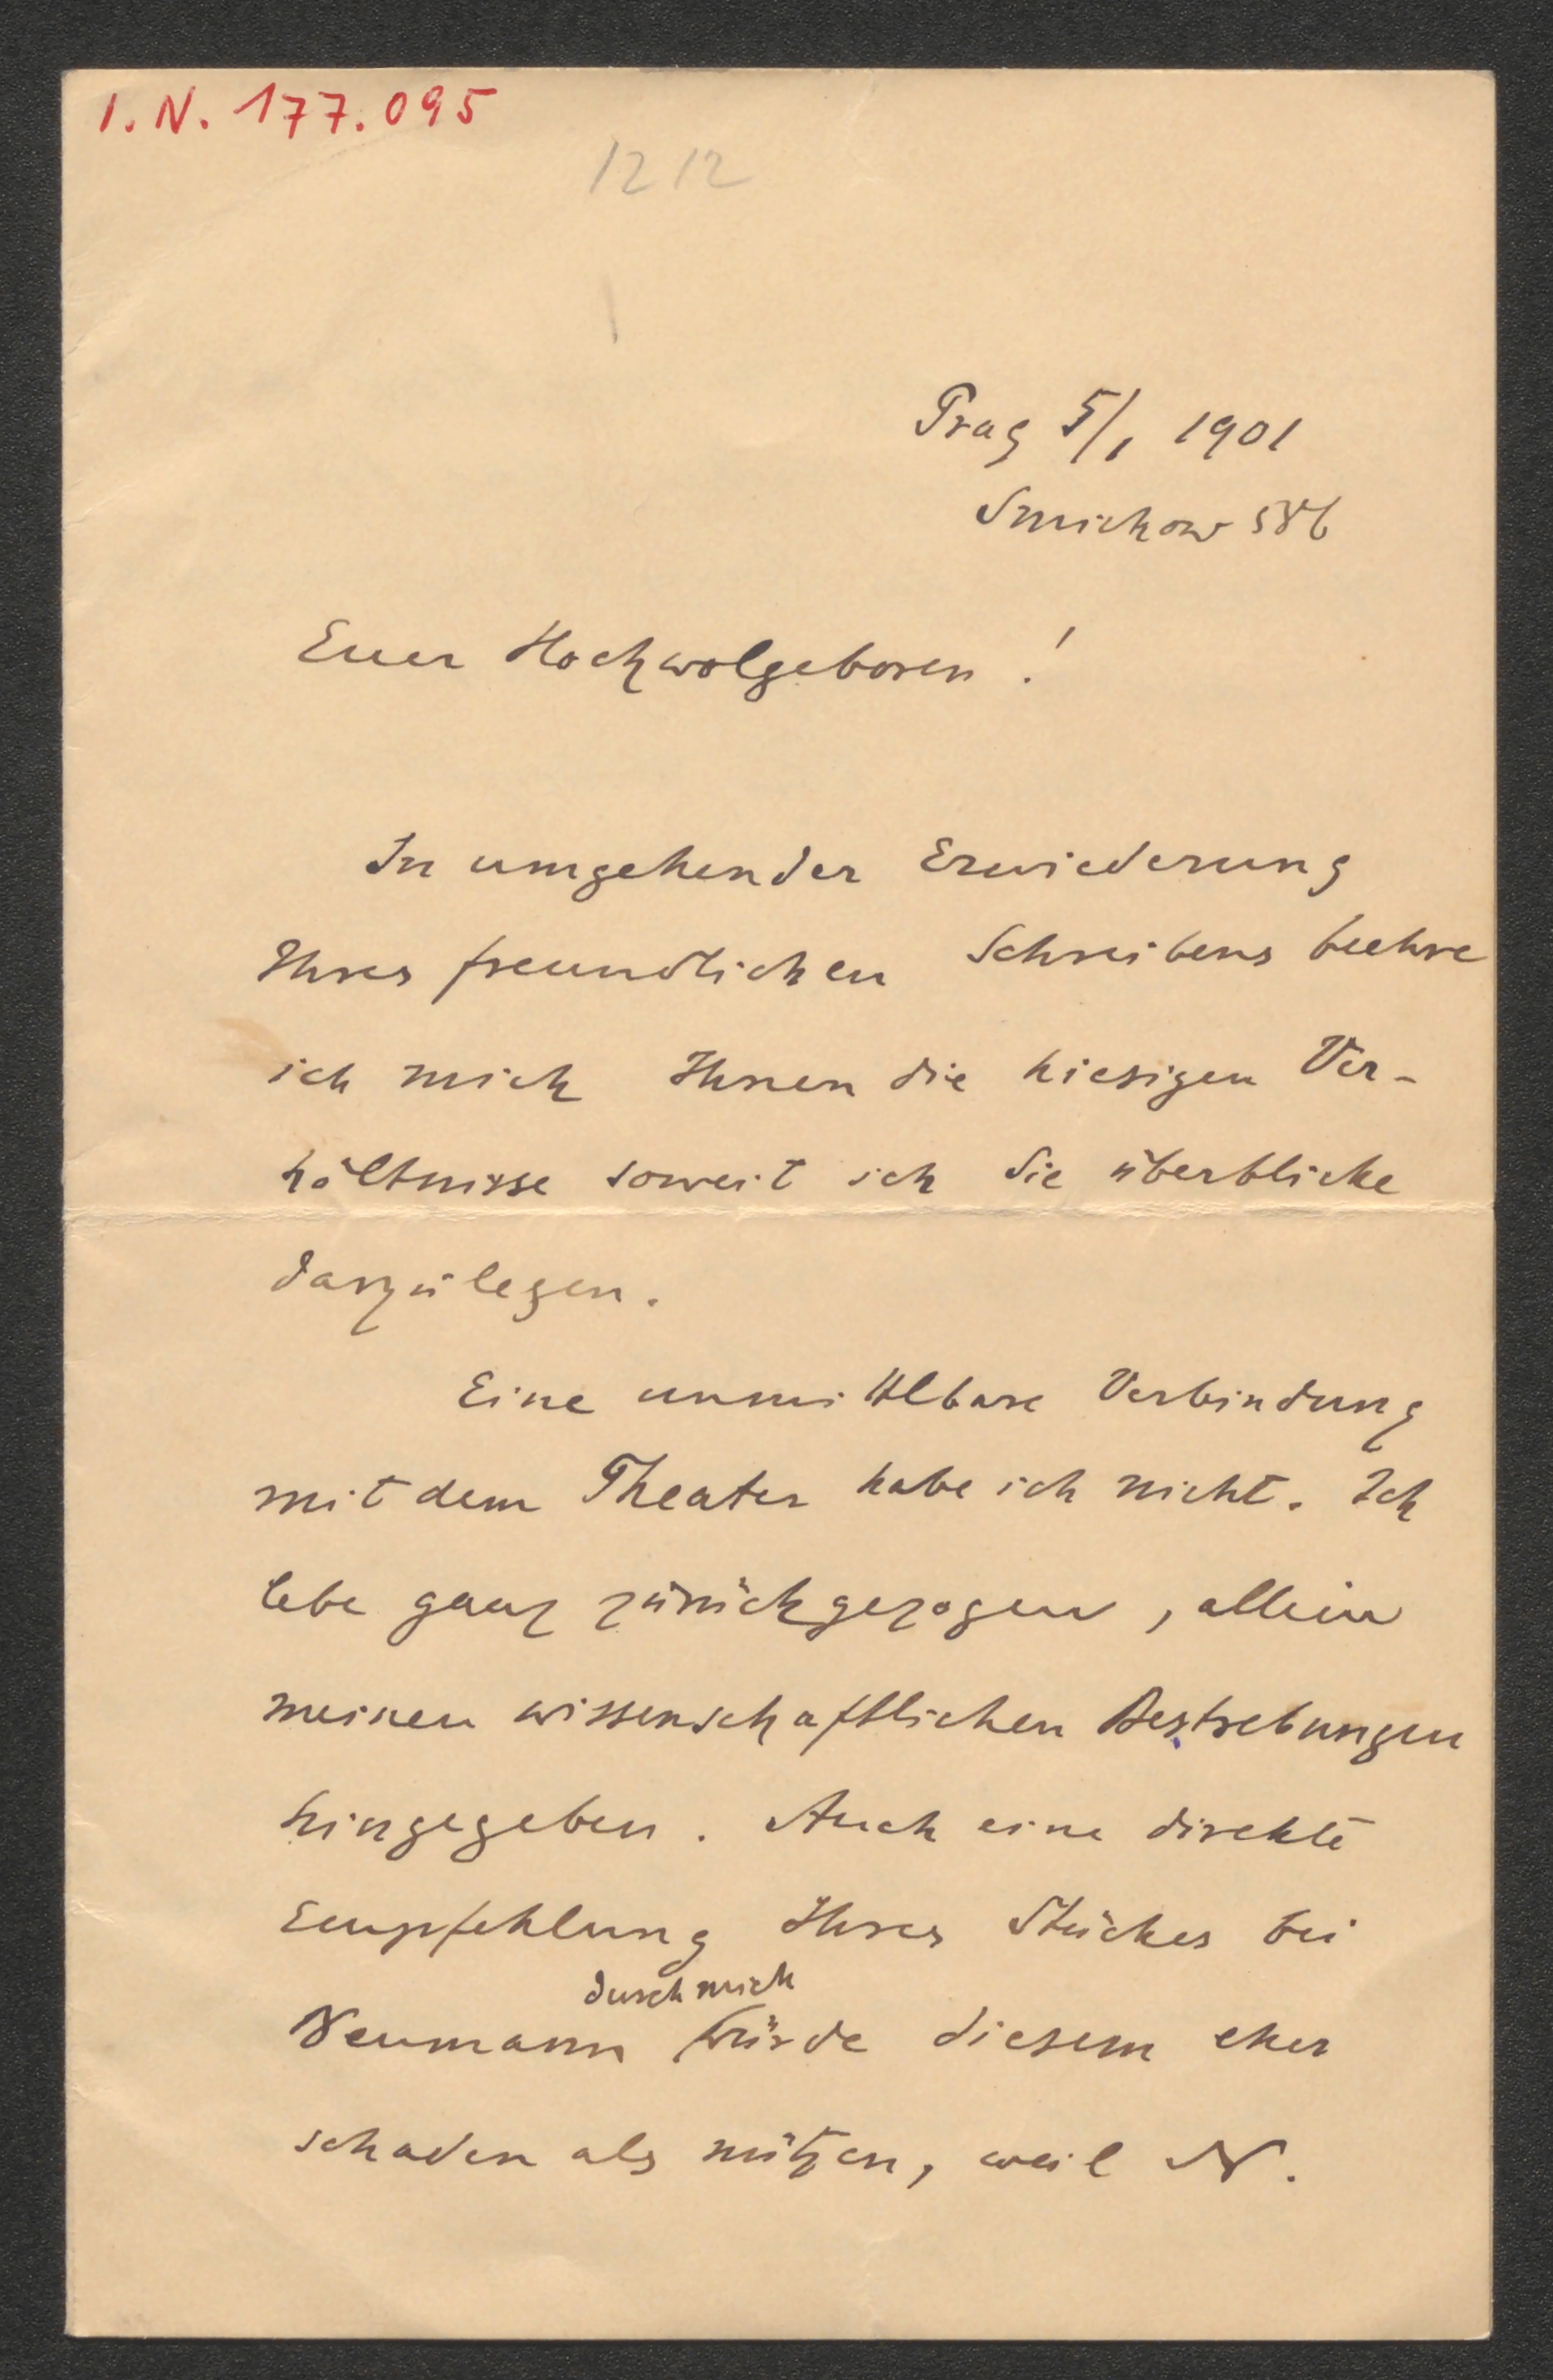 I. N. 177.095
1212
Prag 5/1 1901
Smichow 586
Euer Hochwolgeboren!
In umgehender Erwiederung
Ihres freundlichen Schreibens beehre
ich mich Ihnen die hiesigen Ver-
hältnisse soweit ich sie überblicke
darzulegen.
Eine unmittelbare Verbindung
mit dem Theater habe ich nicht. Ich
lebe ganz zurückgezogen, allein
meinen wissenschaftlichen Bestrebungen
hingegeben. Auch eine direkte
Empfehlung Ihres Stückes bei
durch mich
Neumann würde diesem eher
schaden als nützen, weil N.